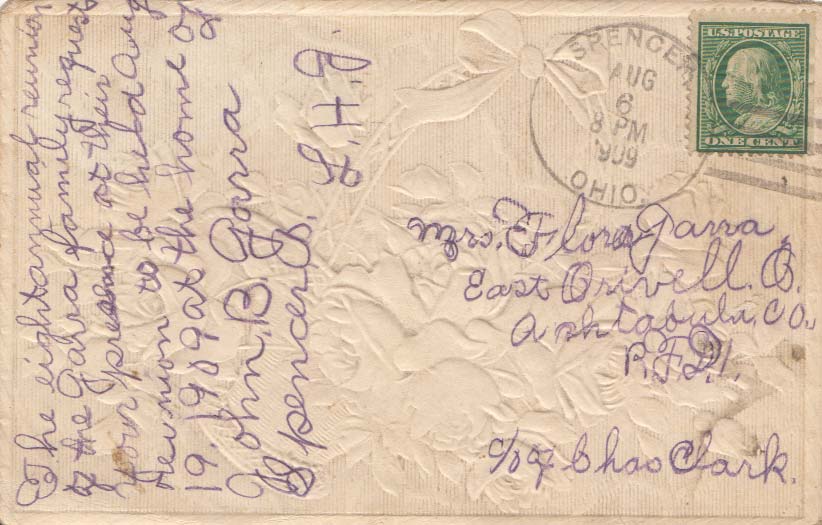 The eight annual reunion
of the Garra family request
your presence at their
reunion to be held Aug
19 1909 at the home of
John, B. Garra
Spencer, O. L. H. G.
SPENCER
AUG
6
8 PM
1909
OHIO.
U.S. POSTAGE
ONE CENT
Mrs. Flora Garra,
East Orwell. O.
Ashtabula, Co.,
R.F.D. 1.
c/o of Chas Clark.